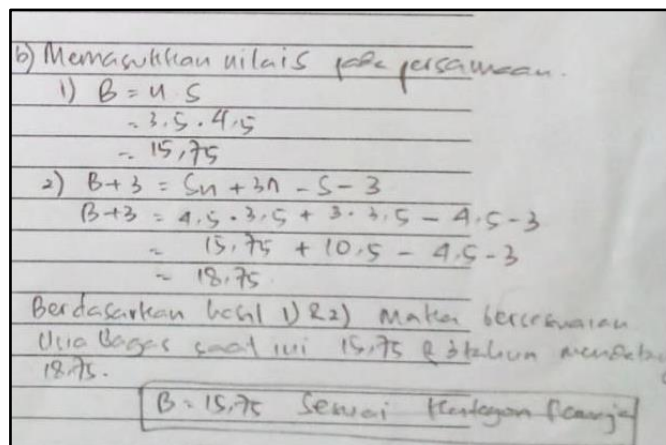 b) Memasukkan nilai S pada persamaan.
1) B = n S
= 3.5 . 4,5
= 15,75
2) B+3 = Sn + 3n - S - 3
B+3 = 4,5 . 3,5 + 3 . 3,5 - 4,5 - 3
= 15,75 + 10,5 - 4,5 - 3
= 18,75.
Berdasarkan hasil 1) & 2) maka bersesuaian
Usia Bagas saat ini 15,75 & 3 tahun mendatang
18,75.
B = 15,75 Sesuai Kategori